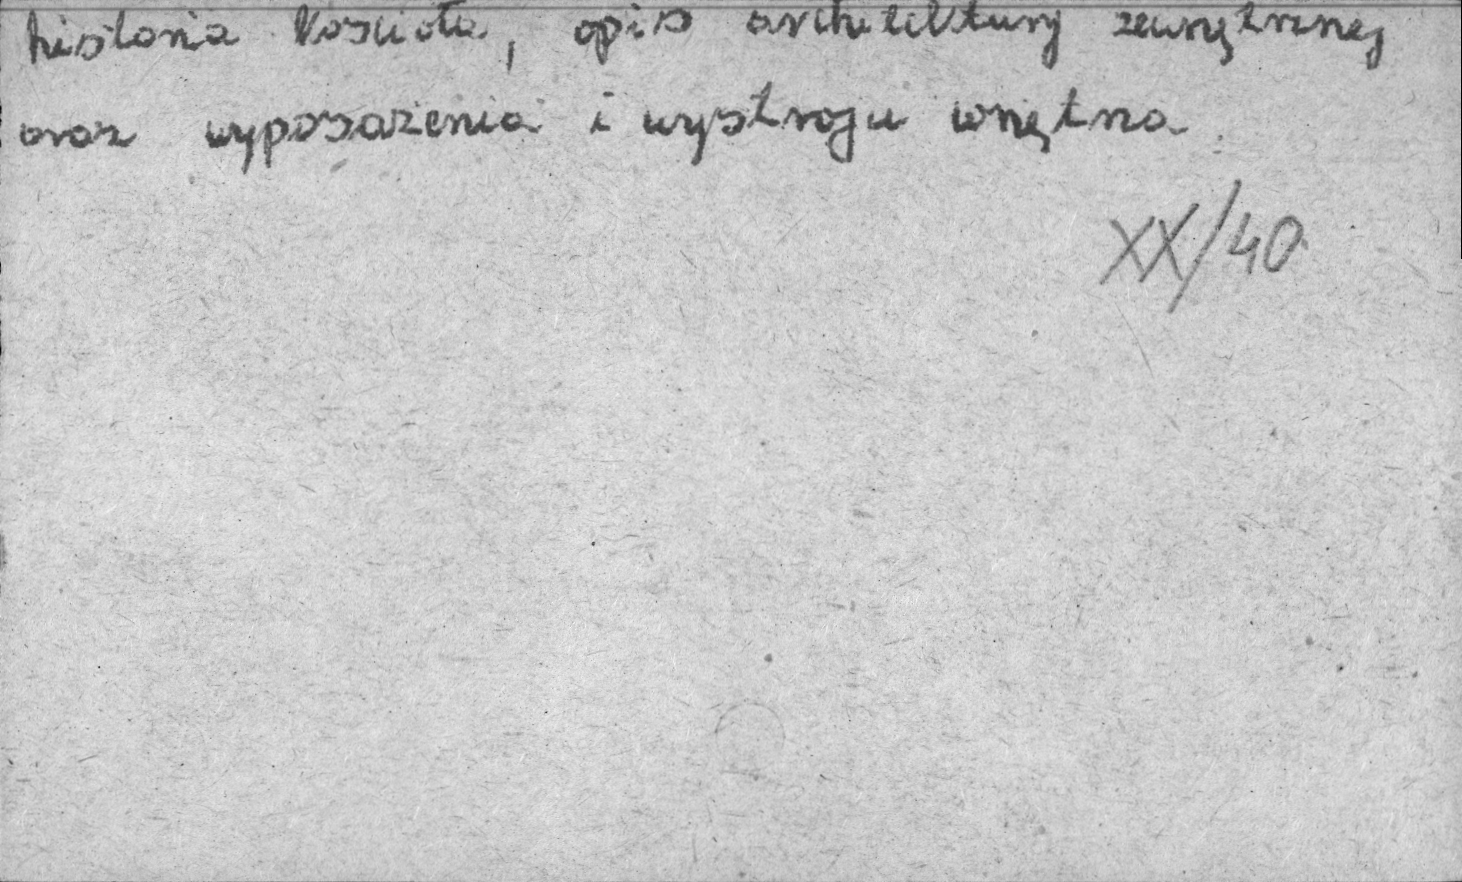 historia kościoła, opis architektury zewnętrznej
oraz wyposażenia i wystroju wnętrza.
XX/40